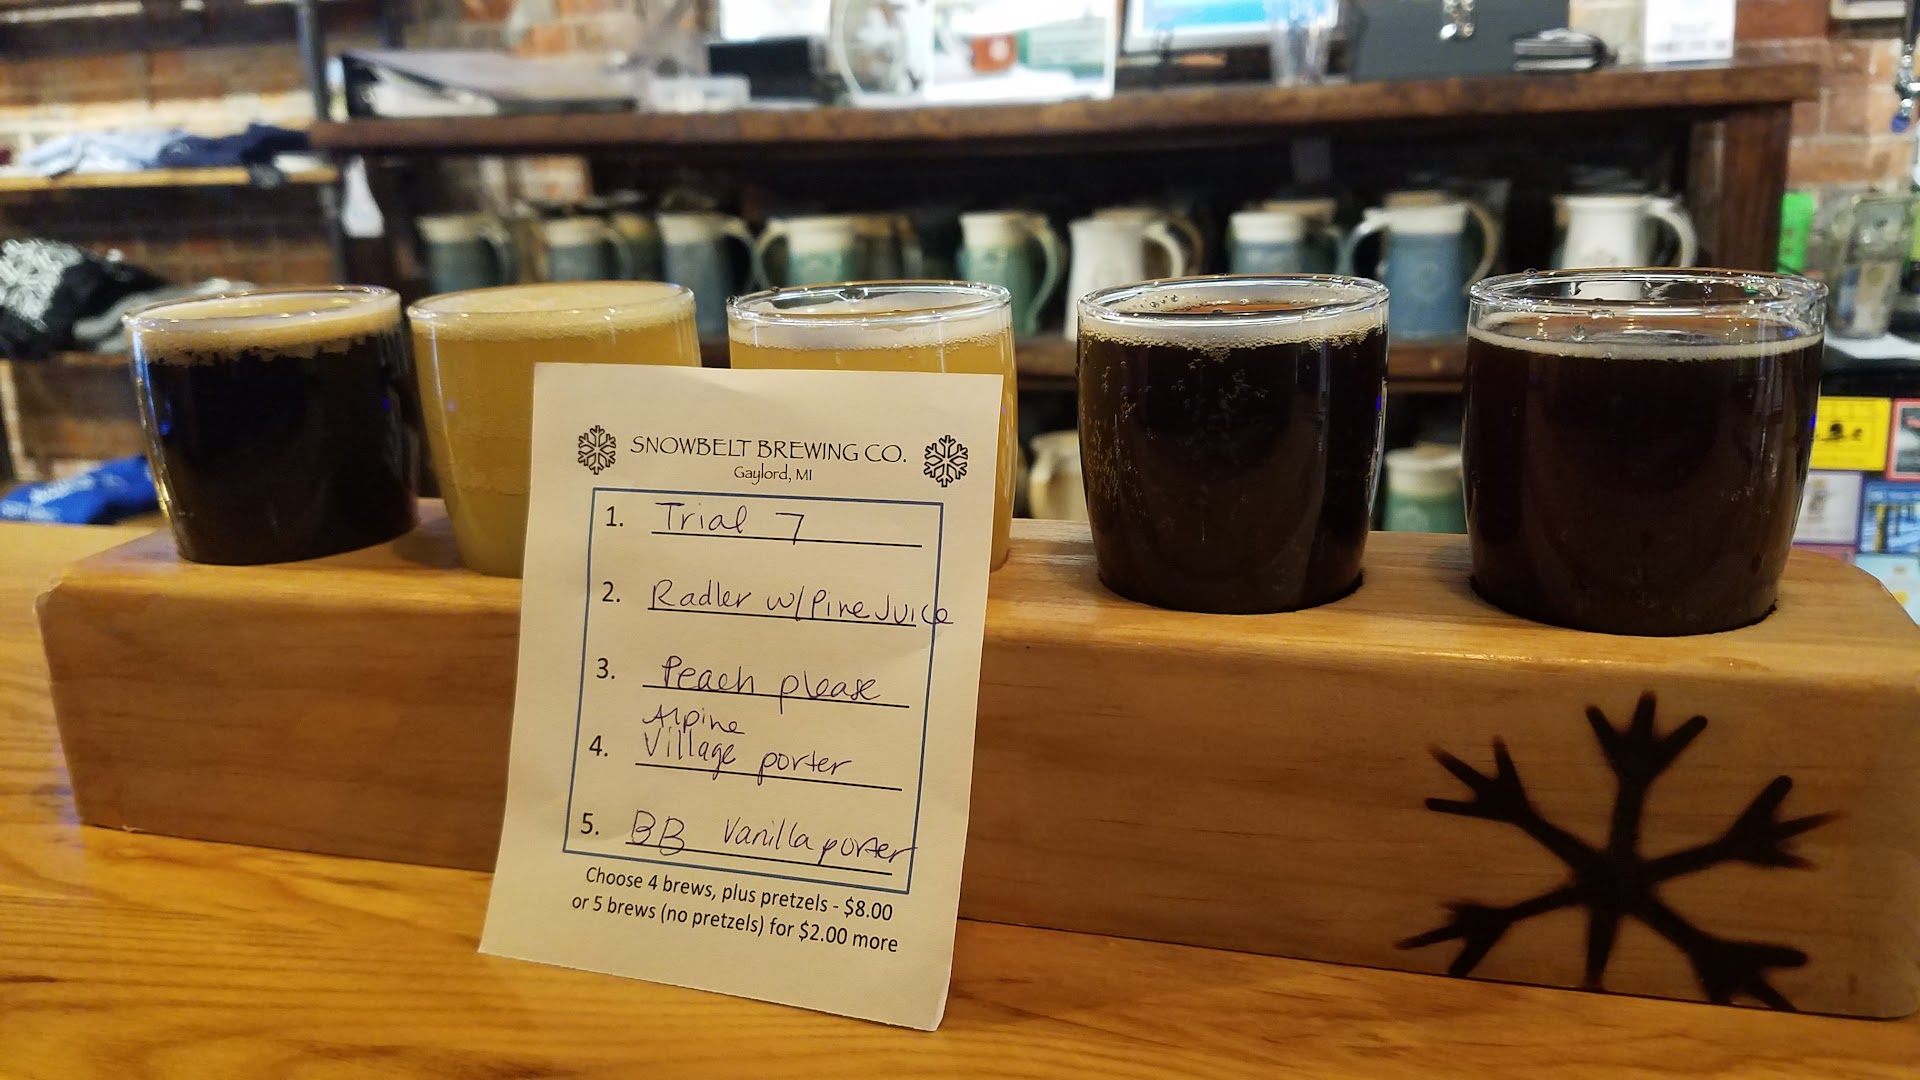 SNOWBELT BREWING CO.
Gaylord, MI
1. Trial 7
2. Radler w/Pine Juice
3. Peach please
Alpine
4. Village porter
5. BB Vanilla porter
Choose 4 brews, plus pretzels - $8.00
or 5 brews (no pretzels) for $2.00 more